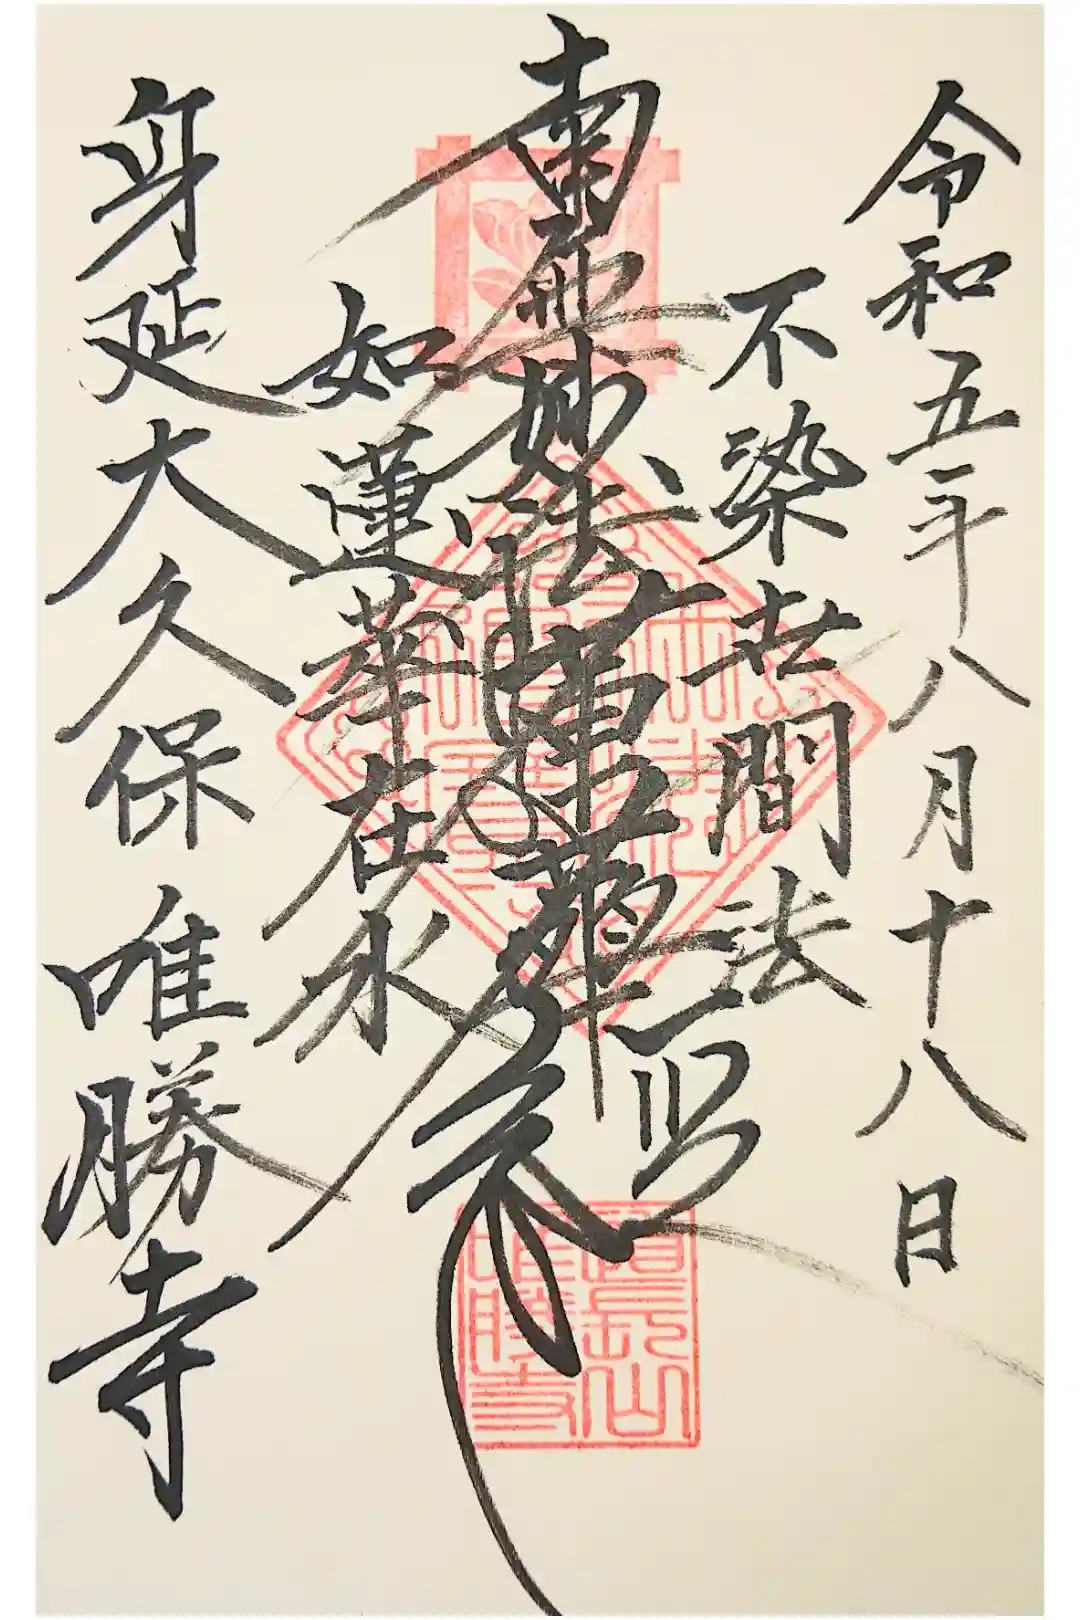 令和五年八月十八日
不染世間法
南無妙法蓮華經
如蓮華在水
身延大久保 唯勝寺
唯勝寺